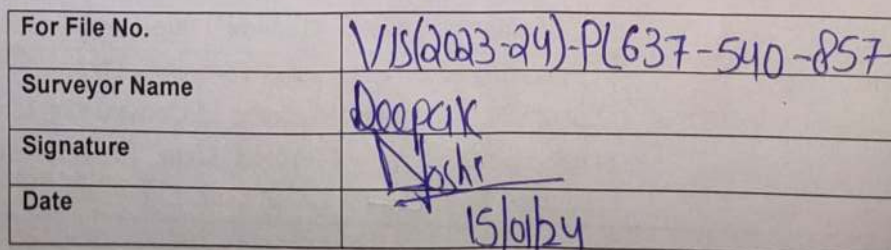 For File No. VIS(2023-24)-PL637-540-857
Surveyor Name Deepak
Signature Joshi
Date 15/01/24